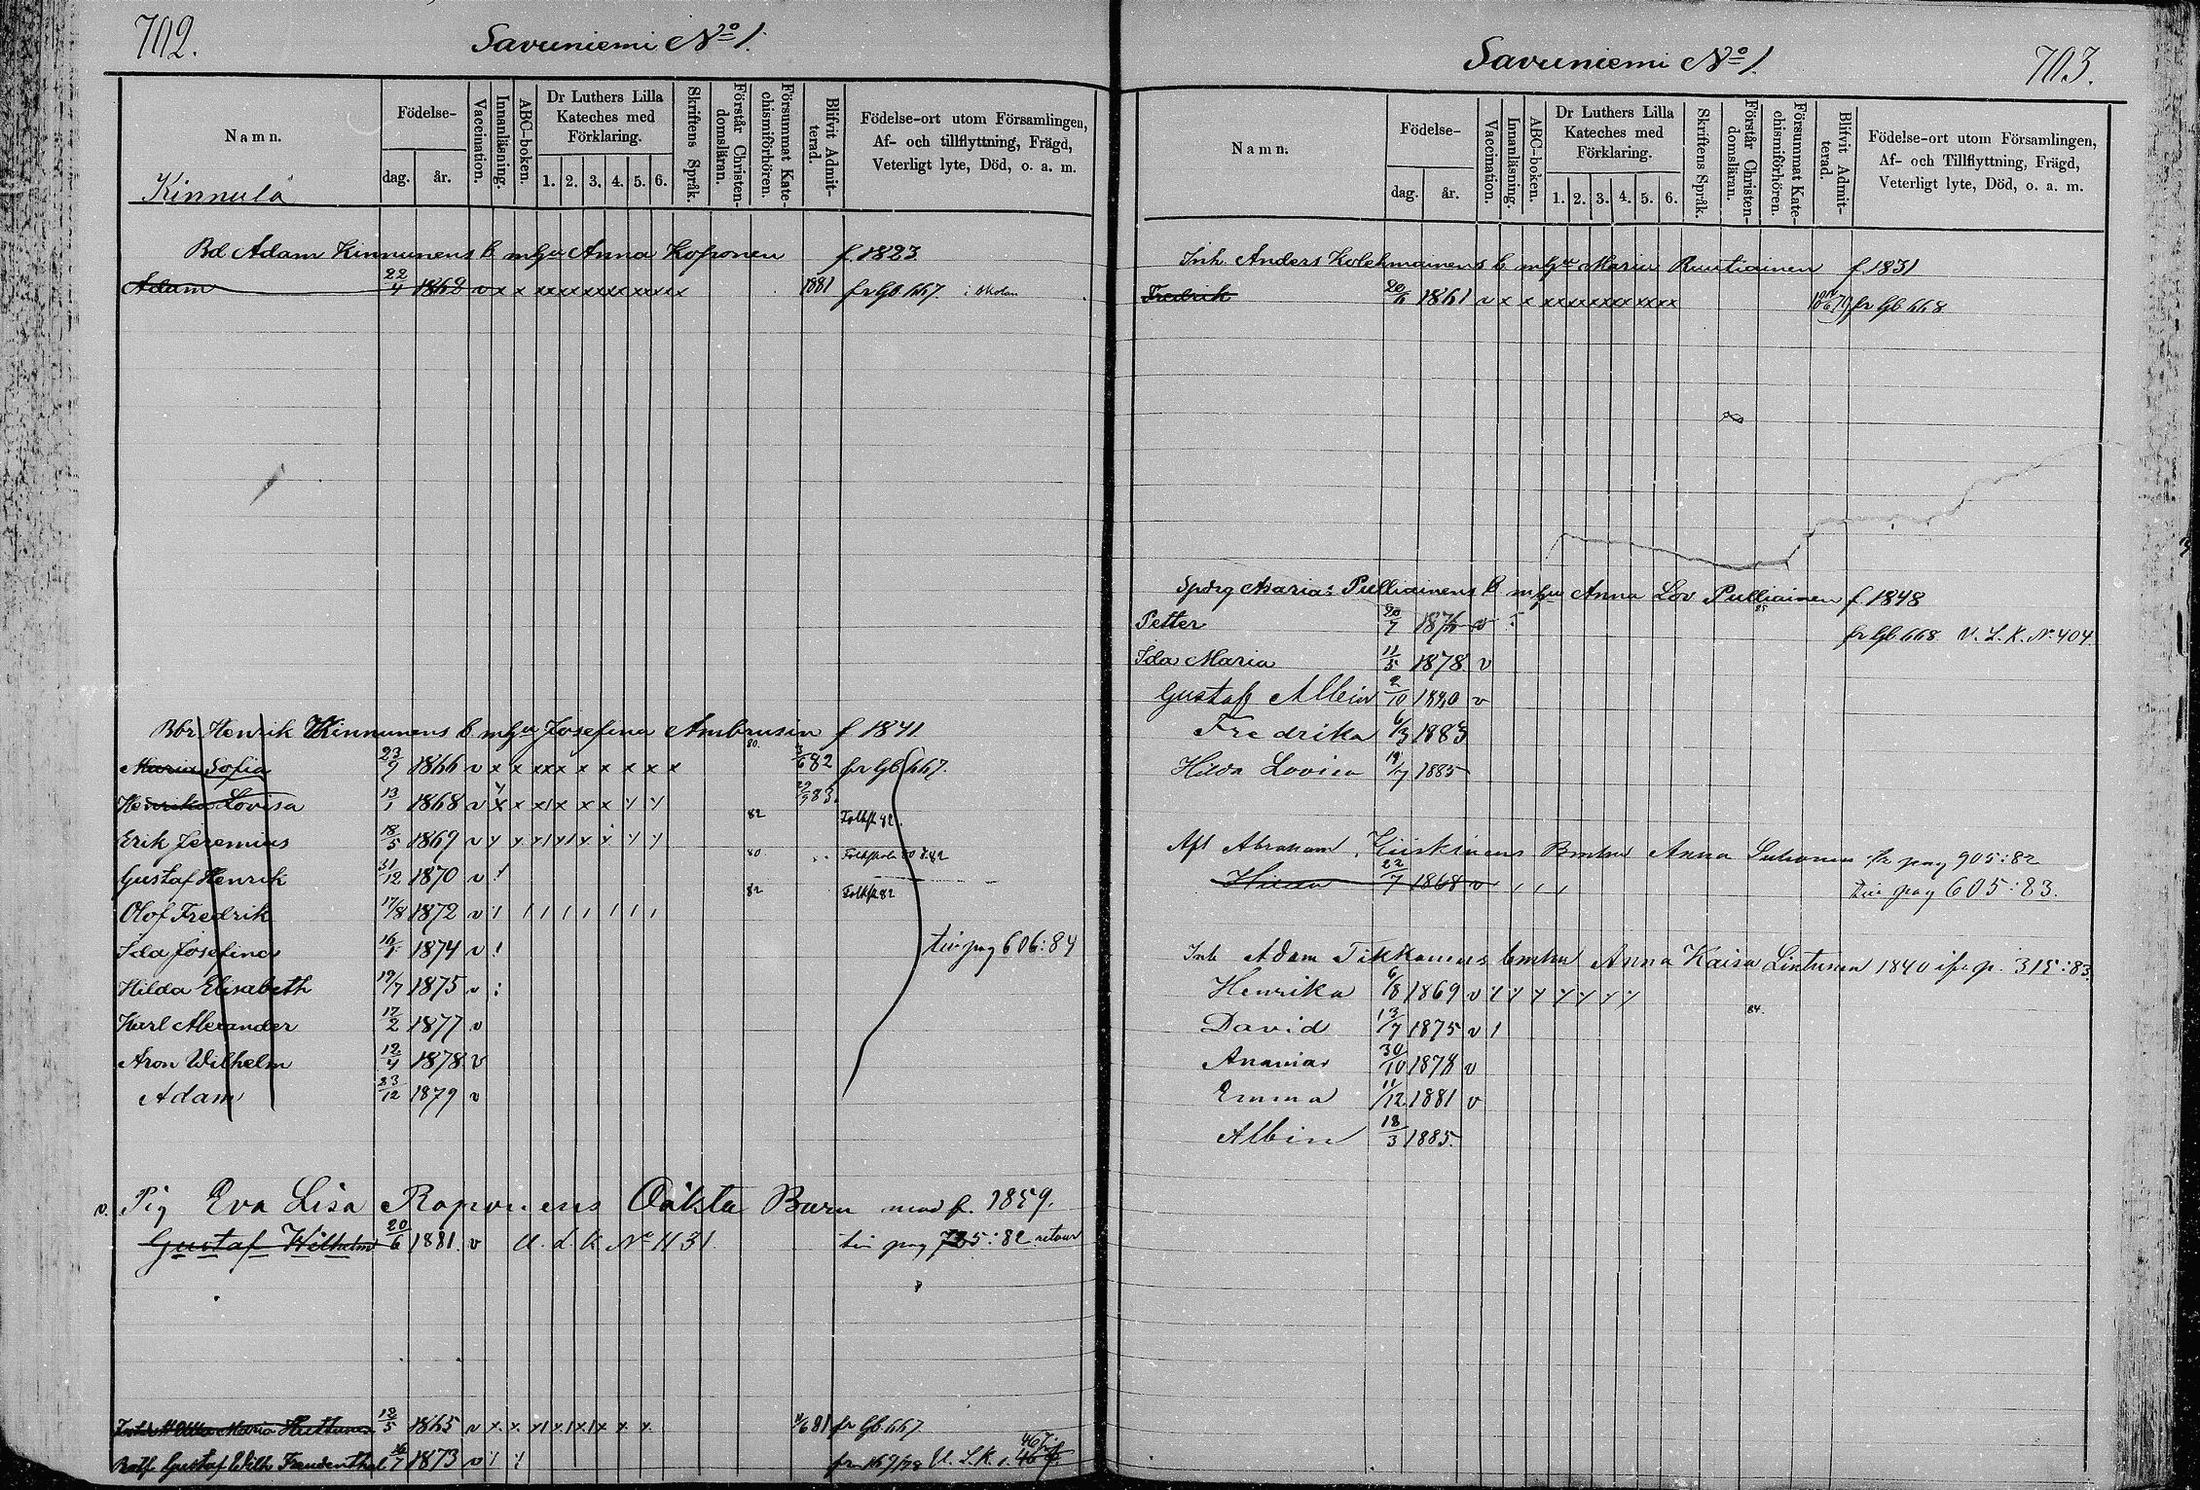 702.
Savuniemi No 1.
Namn.
Födelse-
dag.
år.
Vaccination.
Innanläsning.
ABC-boken.
Dr Luthers Lilla
Kateches med
Förklaring.
1. 2. 3. 4. 5. 6.
Skriftens Språk.
Förstår Christen-
domsläran.
Försummat Kate-
chismiförhören.
Blifvit Admit-
terad.
Födelse-ort utom Församlingen,
Af- och tillflyttning, Frägd,
Veterligt lyte, Död, o. a. m.
Kinnula
Bd Adam Kinnunens b mhu Anna Koponen f 1823
Adam 22/4 1862 v x x xx xx xx xx xx xx 1881 fr Gb 667. i skolan
Bbr Henrik Kinnunens b mhu Josefina Ambrusin f 1841
Maria Sofia 23/7 1866 v x x xx x x x x x x 80. 3/6 82 fr Gb 667.
Lovisa 13/1 1868 v x x x x x x 83.
Erik Jeremias 18/5 1869 v 82 Folksk 82.
Gustaf Henrik 31/12 1870 v 80 Folkskola
Olof Fredrik 17/8 1872 v 82 Folksk 82
Ida Josefina 16/1 1874 v
tir pag 606:84
Hilda Elisabeth 19/7 1875 v
Karl Alexander 17/2 1877 v
Aron Wilhelm 12/4 1878 v
Adam 23/12 1879 v
v. Pig Eva Lisa Raponens Oäkta Barn mod f. 1859.
Gustaf Wilhelm 20/6 1881. v U. L. K No 1131 tir pag :82 retour
Maria Huttunen 12/5 1865 v x x x x x x x x 81 fr Gb 667
Gustaf Wilh Freudenthal 16/7 1873 v fr 169/78 U. L. K.
703.
Savuniemi No 1.
Namn.
Födelse-
dag.
år.
Vaccination.
Innanläsning.
ABC-boken.
Dr Luthers Lilla
Kateches med
Förklaring.
1. 2. 3. 4. 5. 6.
Skriftens Språk.
Förstår Christen-
domsläran.
Försummat Kate-
chismiförhören.
Blifvit Admit-
terad.
Födelse-ort utom Församlingen,
Af- och Tillflyttning, Frägd,
Veterligt lyte, Död, o. a. m.
Inh. Anders Kolehmainens b mhu Maria Ruutiainen f 1831
Fredrik 1861 v x x xx xx xx xx xx xx fr Gb 668
Maria Pulliainens b mhu Anna Lov Pulliainen f 1848
Petter 20/7 v 85 fr Gb 668 U. L. K. No. 404.
Ida Maria 11/5 1878 v
Gustaf Albin 2/10 1880 v
Fredrika 6/3 1883
Hilda Lovisa /7 1885
Abraham Kiiskinens Bmhu Anna fr pag 905:82
22/7 1868 v tir pag 605:83.
Inh Adam Tikkanens bmhu Anna Kaisa Lintunen 1840 p. 315:83.
Henrika 6/8 1869 v
David 13/7 1875 v 84.
Ananias 30/10 1878 v
Emma 11/12 1881 v
Albin 18/3 1885.